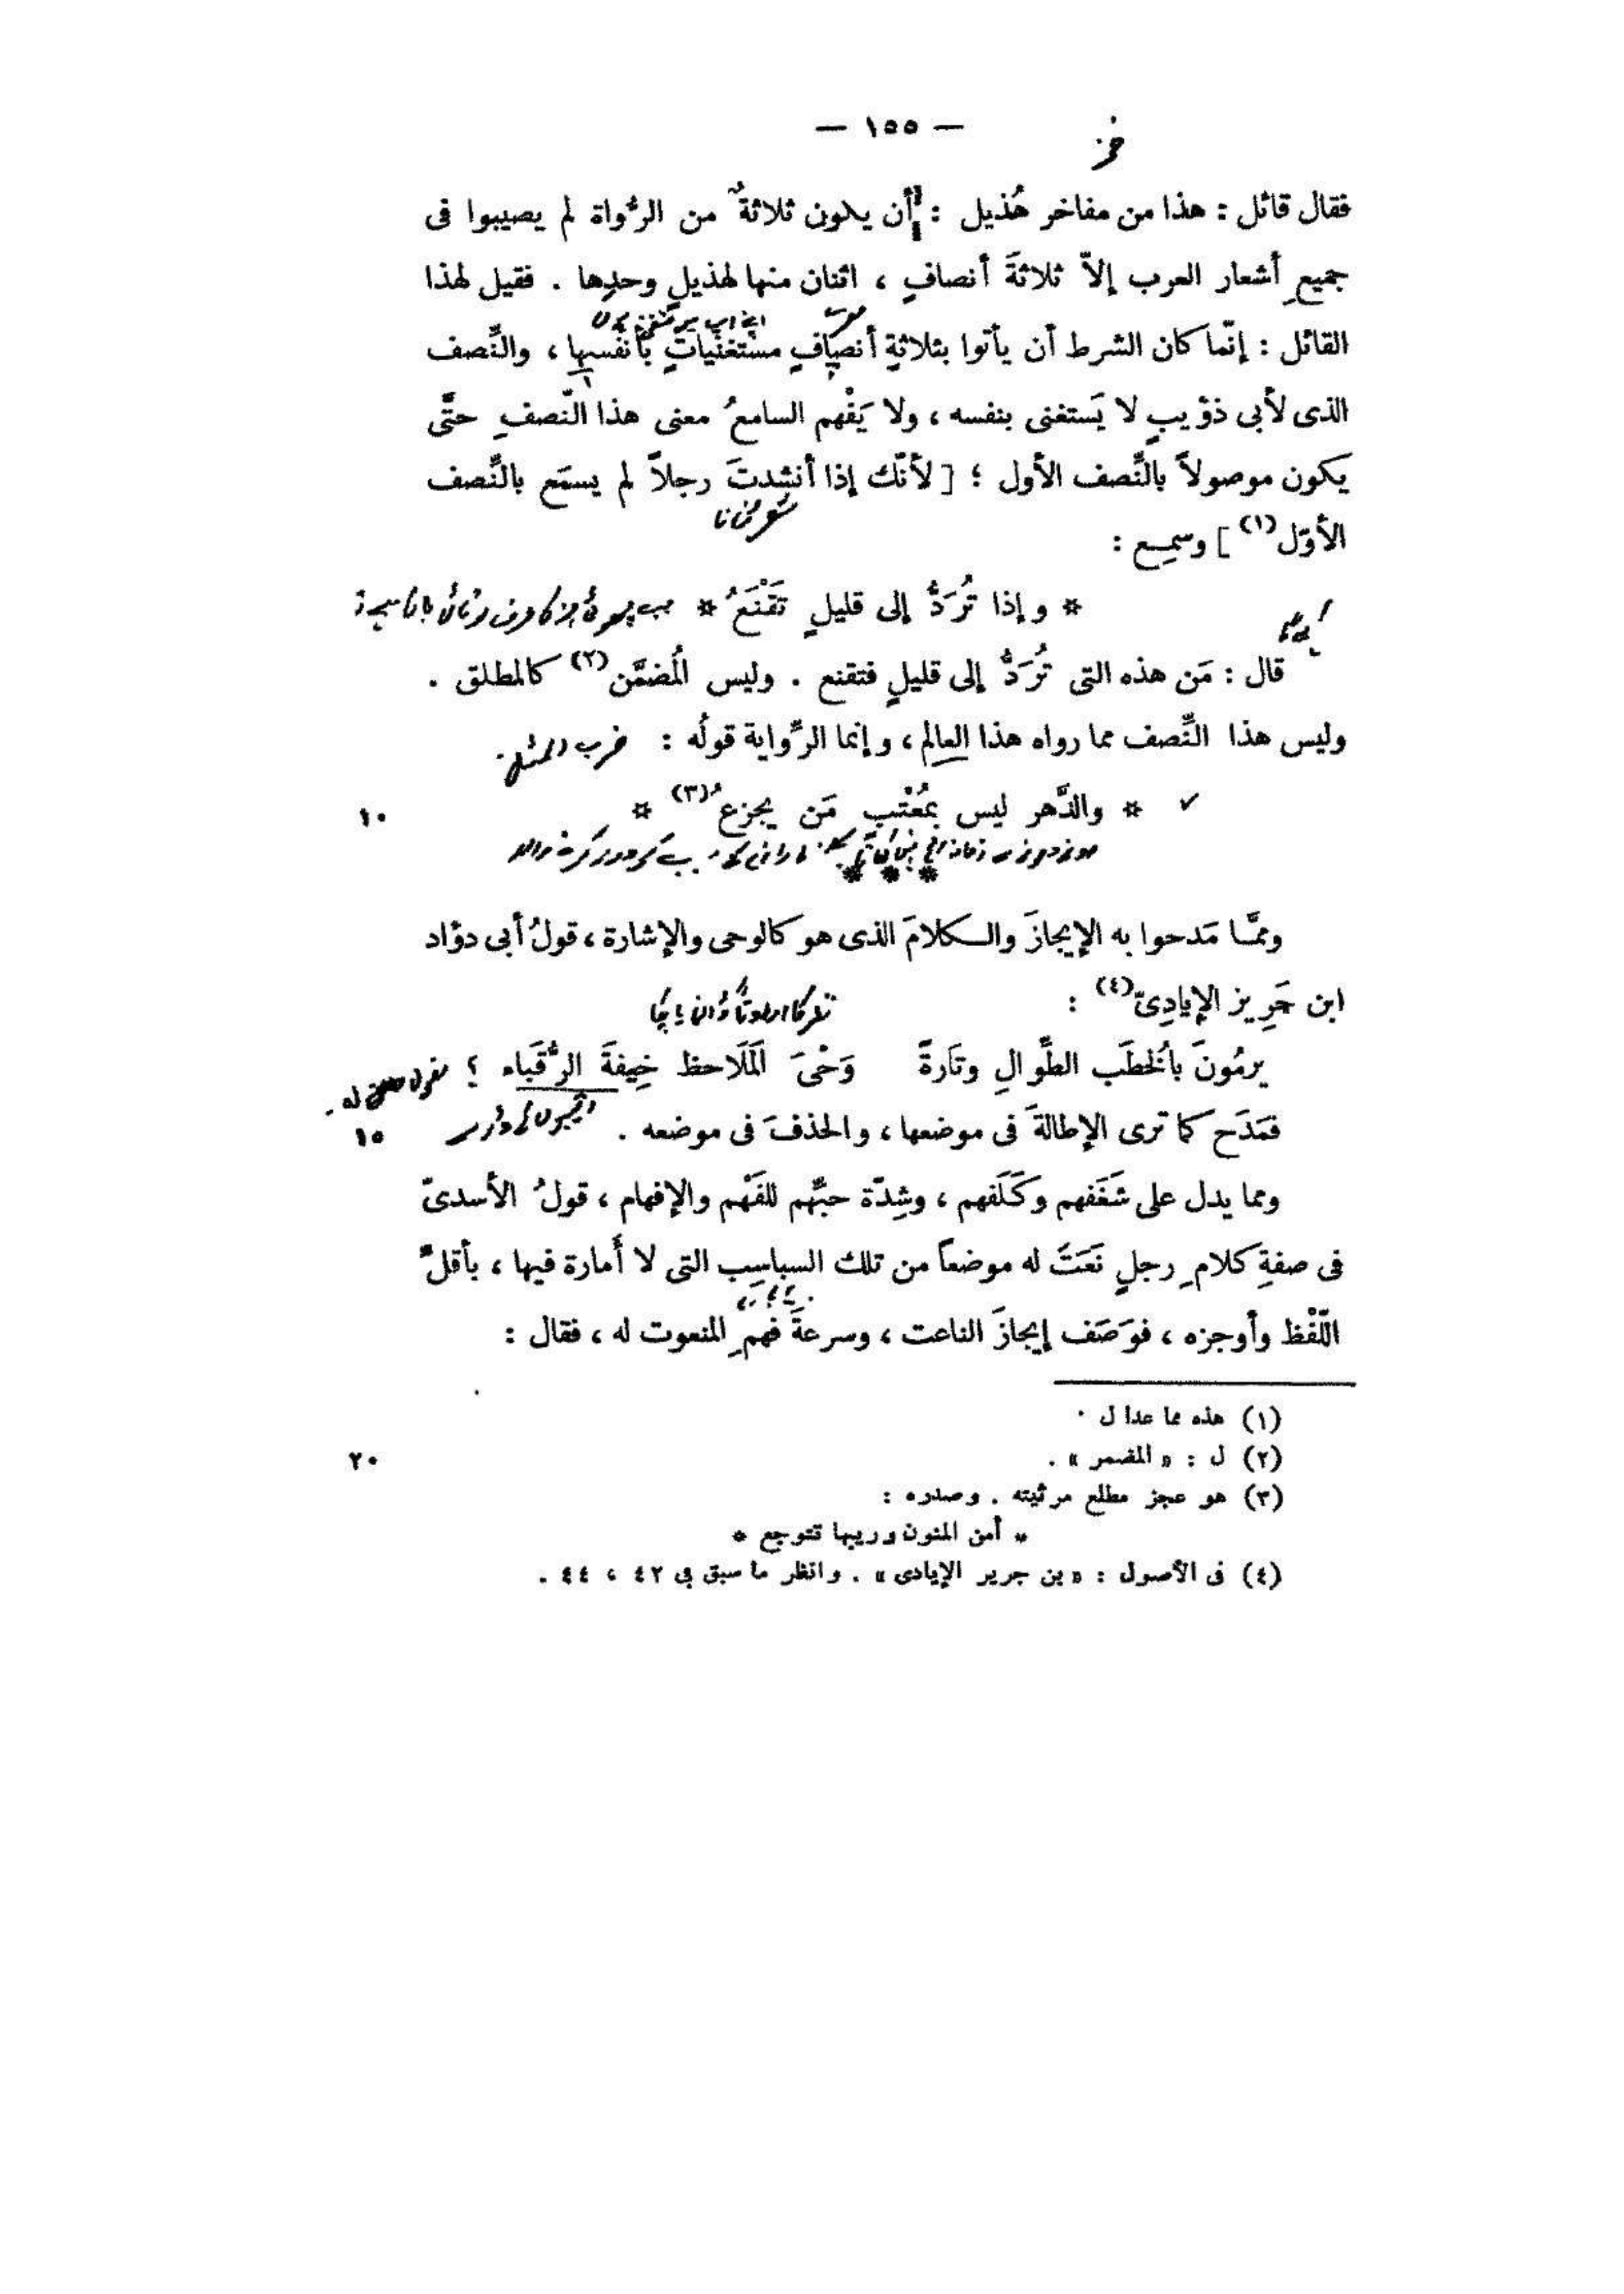 — ١٥٥ —
فقال قائل : هذا من مفاخر هُذيل : أن يكون ثلاثةٌ من الرُّواة لم يصيبوا فى
جميعِ أشعار العرب إلاّ ثلاثةَ أنصافٍ ، اثنان منها لهذيلٍ وحدِها . فقيل لهذا
القائل : إنّما كان الشرط أن يأتوا بثلاثةِ أنصافٍ مستغنياتٍ بأنفسها ، والنِّصف
الذى لأبى ذؤيبٍ لا يَستغنى بنفسه ، ولا يَفْهم السامعُ معنى هذا النّصفِ حتَّى
يكون موصولاً بالنِّصف الأول ؛ [ لأنّك إذا أنشدتَ رجلاً لم يسمَع بالنِّصف
الأوّل (١) ] وسمِع :
* وإذا تُرَدُّ إلى قليلٍ تَقْنَعُ *
قال : مَن هذه التى تُرَدُّ إلى قليلٍ فتقنع . وليس المُضمَّن (٢) كالمطلق .
وليس هذا النِّصف مما رواه هذا العالِم ، وإنما الرِّواية قولُه : ضرب المثل
* والدَّهر ليس بمُعْتِبٍ مَن يجزعُ (٣) * ١٠
* * *
وممَّا مَدحوا به الإيجازَ والكلامَ الذى هو كالوحى والإشارة ، قولُ أبى دؤاد
ابن حَرِيز الإيادِىّ (٤) :
يرمُونَ بالُخطَب الطِّوالِ وتَارةً وَحْىَ الَملَاحظ خِيفةَ الرُّقَباء ؟
فمَدَح كما ترى الإطالةَ فى موضعها ، والحذفَ فى موضعه . ١٥
ومما يدل على شَغَفهم وكَلَفهم ، وشِدّة حبِّهم للفَهْم والإفهام ، قولُ الأسدىّ
فى صفةِ كلامِ رجلٍ نَعَتَ له موضعاً من تلك السباسِب التى لا أَمارة فيها ، بأقلِّ
اللّفْظ وأوجزه ، فوَصَف إيجازَ الناعت ، وسرعةَ فهمِ المنعوت له ، فقال :
(١) هذه مما عدا ل .
(٢) ل : « المضمر » . ٢٠
(٣) هو عجز مطلع مرثيته . وصدره :
* أمن المنون وريبها تتوجع *
(٤) فى الأصول : « بن جرير الإيادى » . وانظر ما سبق فى ٤٢ ، ٤٤ .